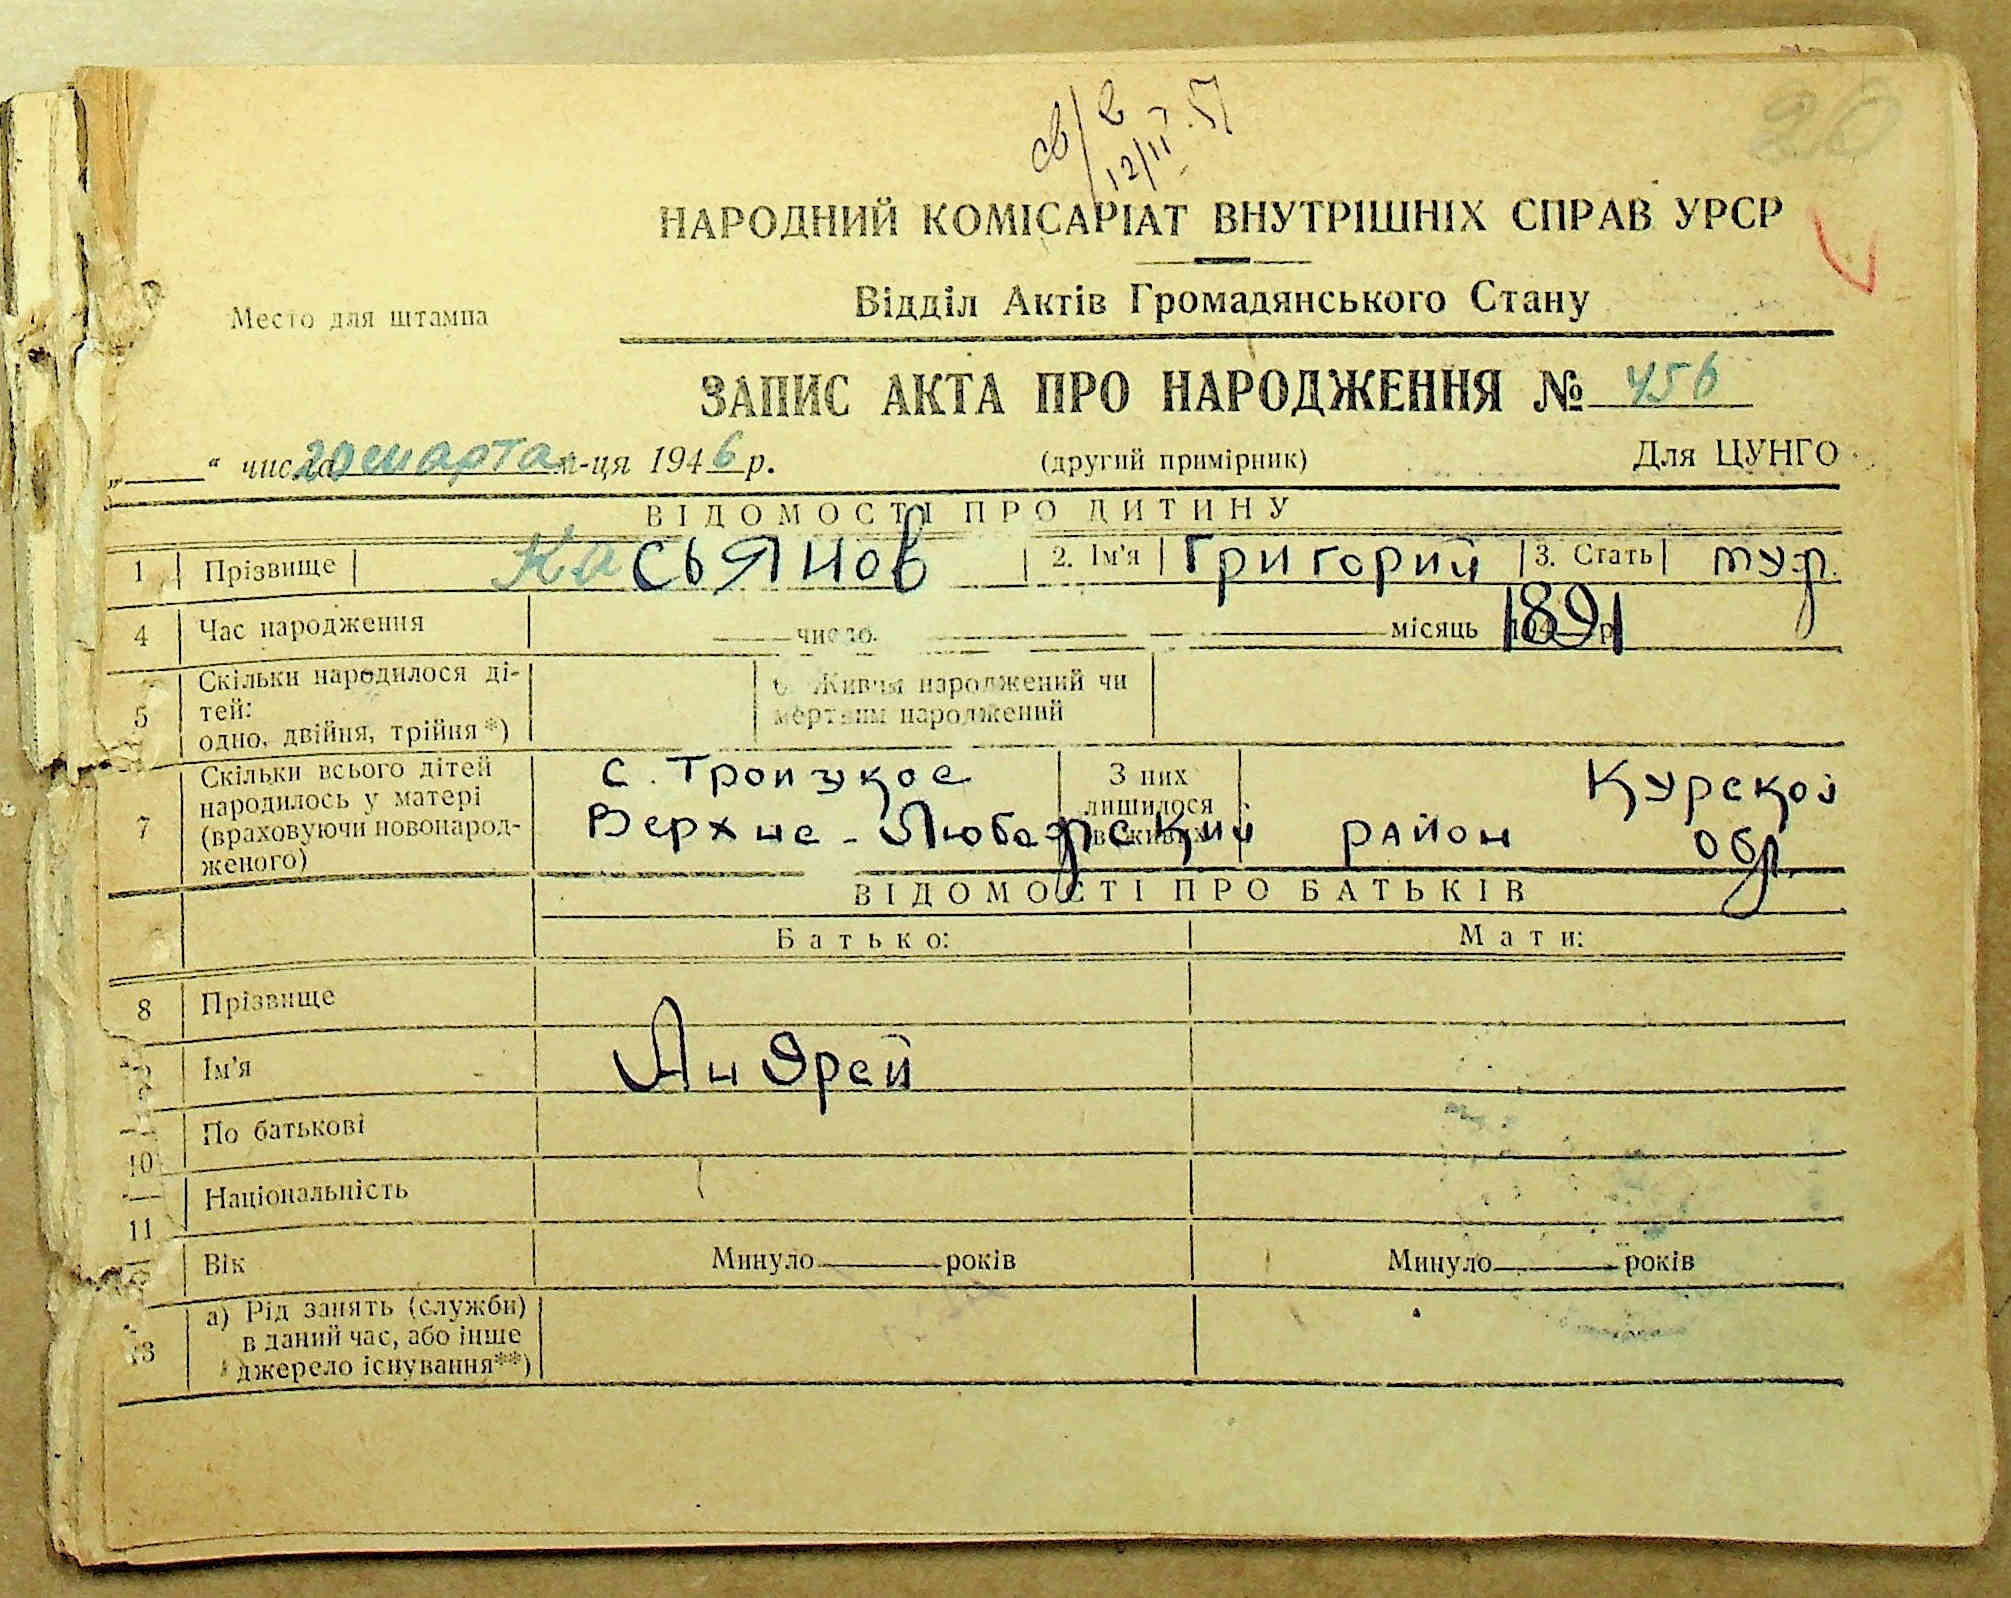 св/2
12/II-57
20
НАРОДНИЙ КОМІСАРІАТ ВНУТРІШНІХ СПРАВ УРСР
Відділ Актів Громадянського Стану
Место для штампа
ЗАПИС АКТА ПРО НАРОДЖЕННЯ № 456
„ “ числа 20 марта м-ця 1946 р. (другий примірник) Для ЦУНГО
ВІДОМОСТІ ПРО ДИТИНУ
1 Прізвище Касьянов 2. Ім'я Григорий 3. Стать муж.
4 Час народження число. місяць 1891 р
5 Скільки народилося ді-
тей:
одно, двійня, трійня*)
6. Живим народжений чи
мертвим народжений
7 Скільки всього дітей
народилось у матері
(враховуючи новонарод-
женого)
с. Троицкое
З них
лишилося
в живих
Курской
Верхне-Любажский район обл.
ВІДОМОСТІ ПРО БАТЬКІВ
Батько: Мати:
8 Прізвище
Ім'я Андрей
По батькові
10
Національність
11
Вік Минуло років Минуло років
13 а) Рід занять (служби)
в даний час, або інше
джерело існування**)